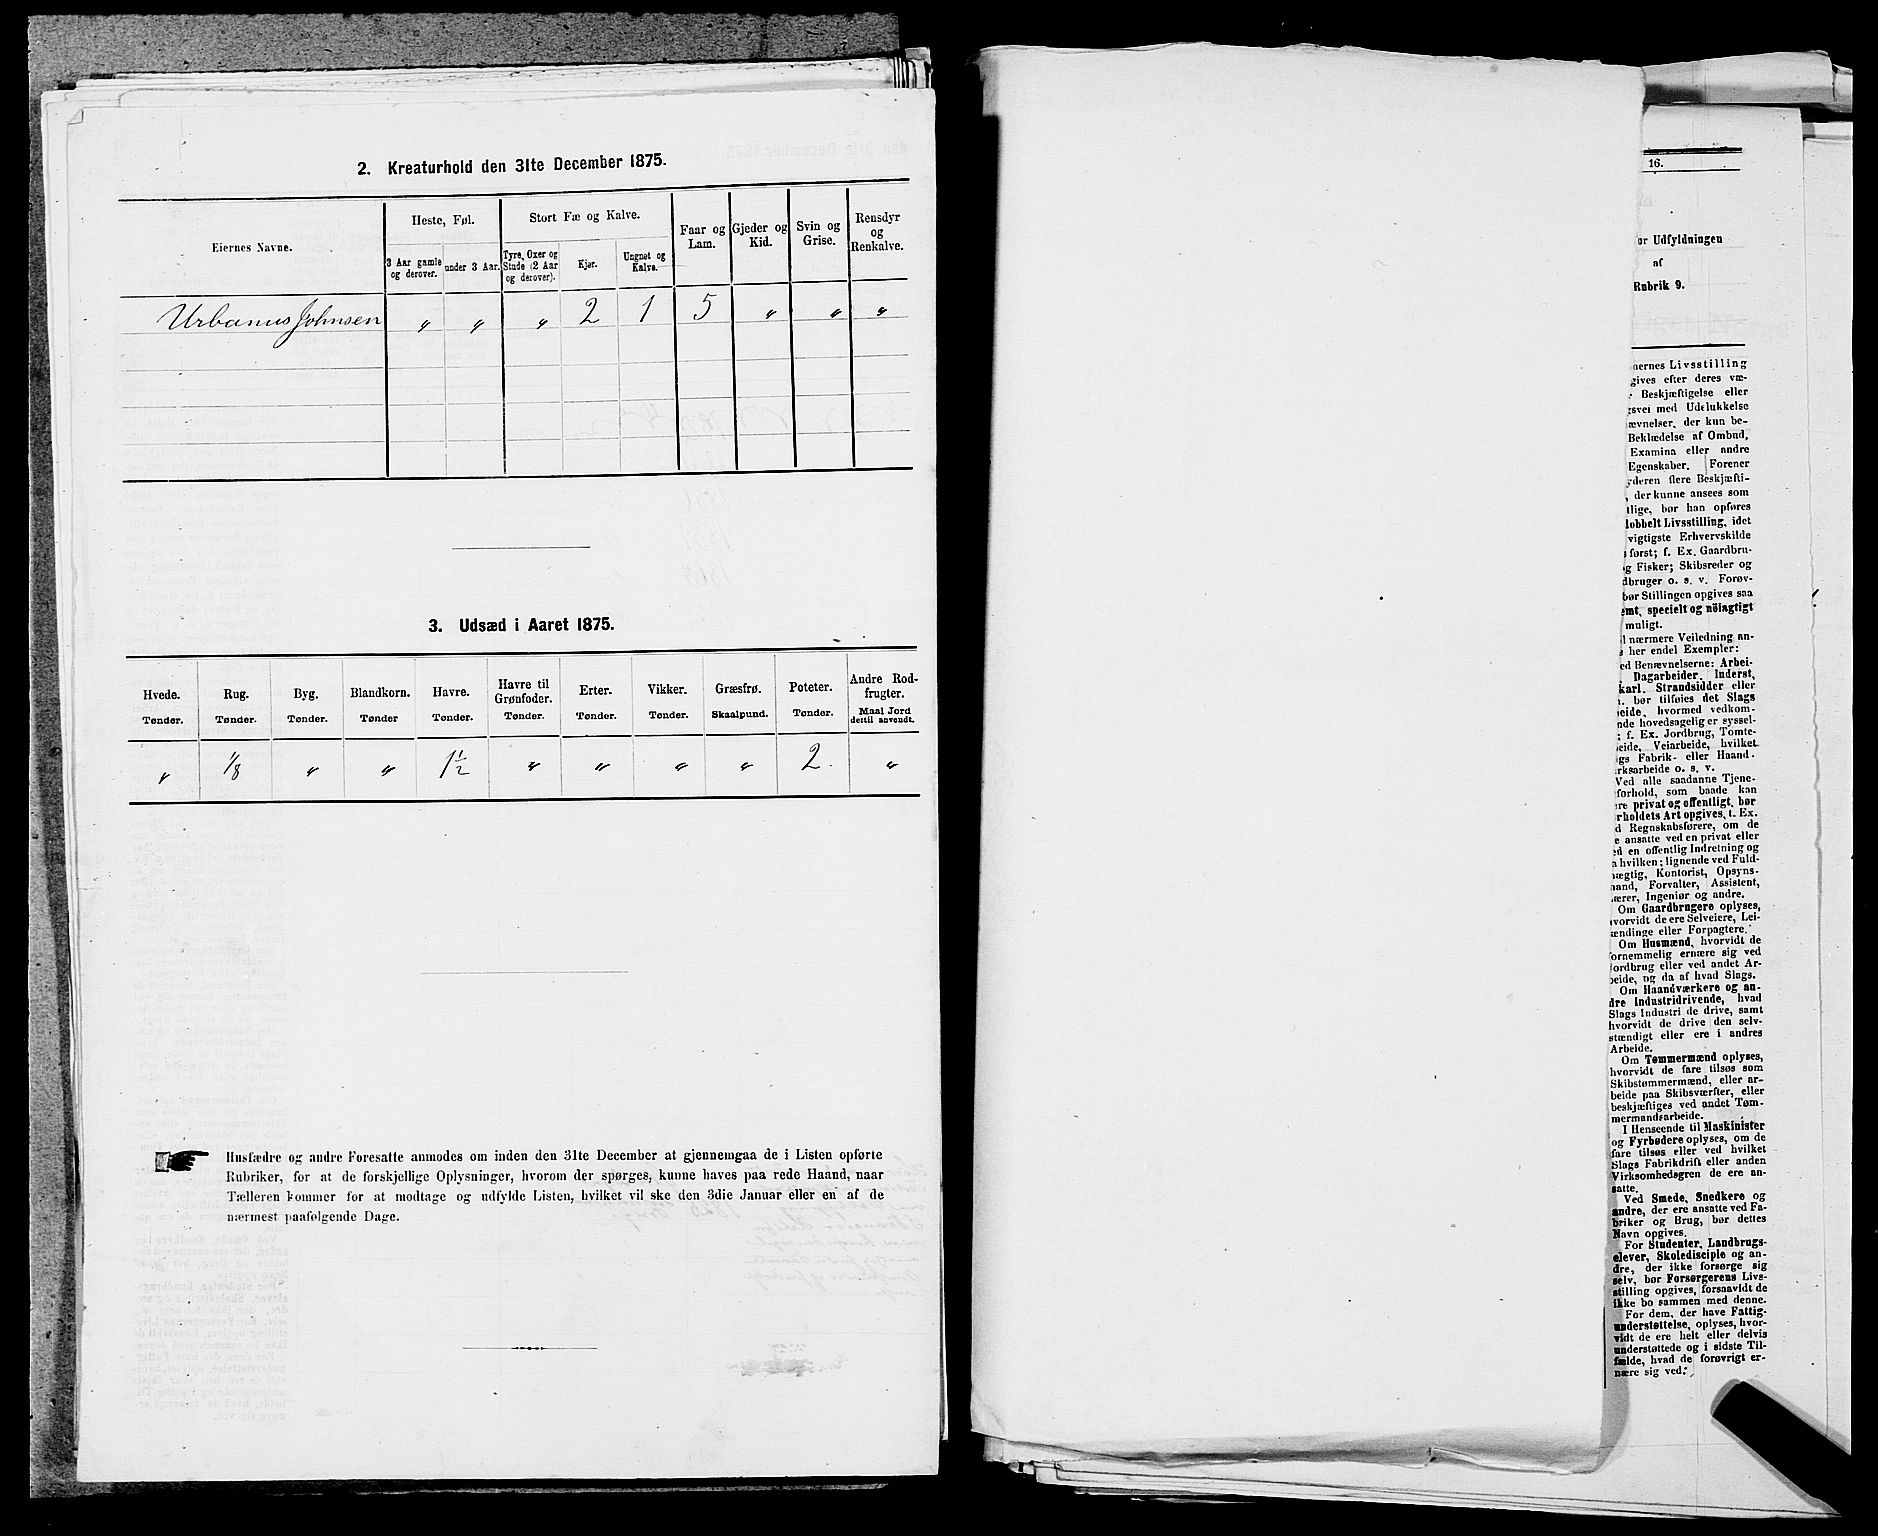 2. Kreaturhold den 31te December 1875.
Eiernes Navne.
Heste, Føl.
3 Aar gamle og derover.
under 3 Aar.
Stort Fæ og Kalve.
Tyre, Oxer og Stude (2 Aar og derover).
Kjør.
Ungnøt og Kalve.
Faar og Lam.
Gjeder og Kid.
Svin og Grise.
Rensdyr og Renkalve.
Urbanus Johnsen " " " 2 1 5 " " "
3. Udsæd i Aaret 1875.
Hvede. Rug. Byg. Blandkorn. Havre. Havre til Grønfoder. Erter. Vikker. Græsfrø. Poteter. Andre Rodfrugter.
Tønder. Tønder. Tønder. Tønder Tønder. Tønder. Tønder. Tønder. Skaalpund. Tønder. Maal Jord dertil anvendt.
" 1/8 " " 1 1/2 " " " " 2. "
Husfædre og andre Foresatte anmodes om inden den 31te December at gjennemgaa de i Listen opførte
Rubriker, for at de forskjellige Oplysninger, hvorom der spørges, kunne haves paa rede Haand, naar
Tælleren kommer for at modtage og udfylde Listen, hvilket vil ske den 3die Januar eller en af de
nærmest paafølgende Dage.
16.
or Udfyldningen
af
Rubrik 9.
nernes Livsstilling
gives efter deres væ-
Beskjæftigelse eller
gsvei med Udelukkelse
ævnelser, der kun be-
Beklædelse af Ombud,
Examina eller andre
Egenskaber. Forener
yderen flere Beskjæfti-
, der kunne ansees som
tlige, bør han opføres
lobbelt Livsstilling, idet
vigtigste Erhvervskilde
først; f. Ex. Gaardbru-
g Fisker; Skibsreder og
dbruger o. s. v. Forøv-
bør Stillingen opgives saa
emt, specielt og nöiagtigt
muligt.
l nærmere Veiledning an-
s her endel Exempler:
ed Benævnelserne: Arbei-
Dagarbeider, Inderst,
karl, Strandsidder eller
. bør tilføies det Slags
eide, hvormed vedkom-
nde hovedsagelig er syssel-
; f. Ex. Jordbrug, Tomte-
eide, Veiarbeide, hvilket
gs Fabrik- eller Haand-
rksarbeide o. s. v.
Ved alle saadanne Tjene-
forhold, som baade kan
ere privat og offentligt, bør
rholdets Art opgives, t. Ex.
d Regnskabsførere, om de
e ansatte ved en privat eller
ed en offentlig Indretning og
a hvilken; lignende ved Fuld-
ægtig, Kontorist, Opsyns-
nand, Forvalter, Assistent,
ærer, Ingeniør og andre.
Om Gaardbrugere oplyses,
vorvidt de ere Selveiere, Lei-
ændinge eller Forpagtere.
Om Husmænd, hvorvidt de
fornemmelig ernære sig ved
Jordbrug eller ved andet Ar-
beide, og da af hvad Slags.
Om Haandværkere og an-
dre Industridrivende, hvad
Slags Industri de drive, samt
hvorvidt de drive den selv-
stændigt eller ere i andres
Arbeide.
Om Tømmermænd oplyses,
hvorvidt de fare tilsøs som
Skibstømmermænd, eller ar-
beide paa Skibsværfter, eller
beskjæftiges ved andet Tøm-
mermandsarbeide.
I Henseende til Maskinister
og Fyrbødere oplyses, om de
fare tilsøs eller ved hvilket
Slags Fabrikdrift eller anden
Virksomhedsgren de ere an-
satte.
Ved Smede, Snedkere og
andre, der ere ansatte ved Fa-
briker og Brug, bør dettes
Navn opgives.
For Studenter, Landbrugs-
elever, Skoledisciple og an-
dre, der ikke forsørge sig
selv, bør Forsørgerens Livs-
stilling opgives, forsaavidt de
ikke bo sammen med denne.
For dem, der have Fattig-
understøttelse, oplyses, hvor-
vidt de ere helt eller delvis
understøttede og i sidste Til-
fælde, hvad de forøvrigt er-
nære sig ved.